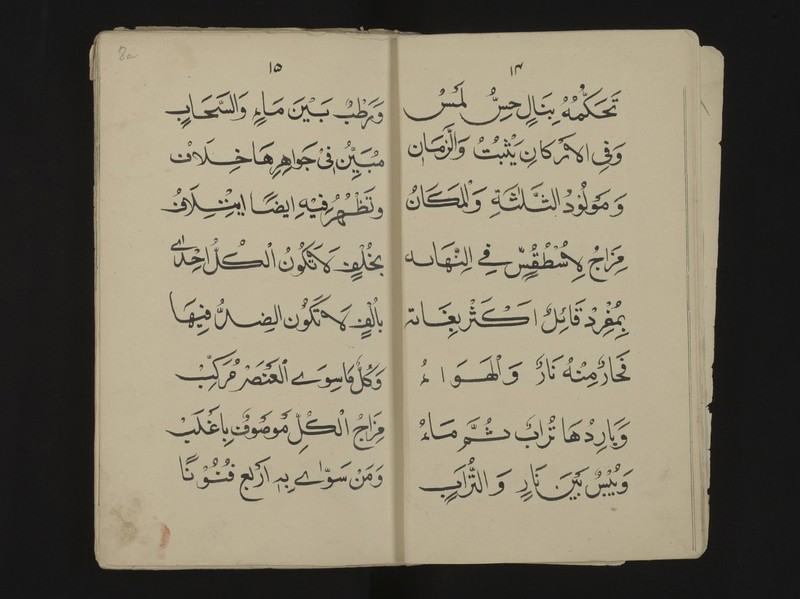 ١٤
تَحَكُّمُهُ بِنَالٍ حِسُّ لَمْسُ
وَفِي الْاَرْكَانِ يَثْبُتُ وَالزَّمَانِ
وَمَوْلُوْدُ الثَّلٰثَةِ وَالْمَكَانُ
مِزَاجُ لِاُسْطُقُسٍّ فِي النِّهَايَه
بِمُفْرِدْ قَائِلٌ اَكْثَرْ بِغَايَه
فَحَارٌ مِنْهُ نَارٌ وَالْهَوَاءُ
وَبَارِدُهَا تُرَابٌ ثُمَّ مَاءُ
وَيُبْسٌ بَيْنَ نَارٍ وَالتُّرَابِ
8a
١٥
وَرَطْبٌ بَيْنَ مَاءٍ وَالسَّحَابِ
مُبَيِّنُ فِي جَوَاهِرِهَا خِلَافٌ
وَتَظْهَرُ فِيْهِ اَيْضًا ائْتِلَافُ
بِخُلْفٍ لَا تَكُوْنُ الْكُلُّ اِحْدٰى
بِاُلْفٍ لَا تَكُوْنُ الضِّدُّ فِيْهَا
وَكُلٌّ مَا سِوَى الْعُنْصَرْ مُرَكَّبْ
مِزَاجُ الْكُلِّ مَوْصُوْفٌ بِاَغْلَبْ
وَمَنْ سَوّٰى بِهٖ اَرْبَعْ فُنُوْنًا